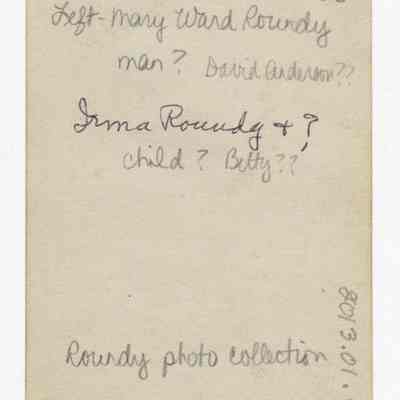 Left - Mary Ward Roundy
man? David Anderson??
Irma Roundy + ?
child? Betty??
Roundy photo collection
8013.01.